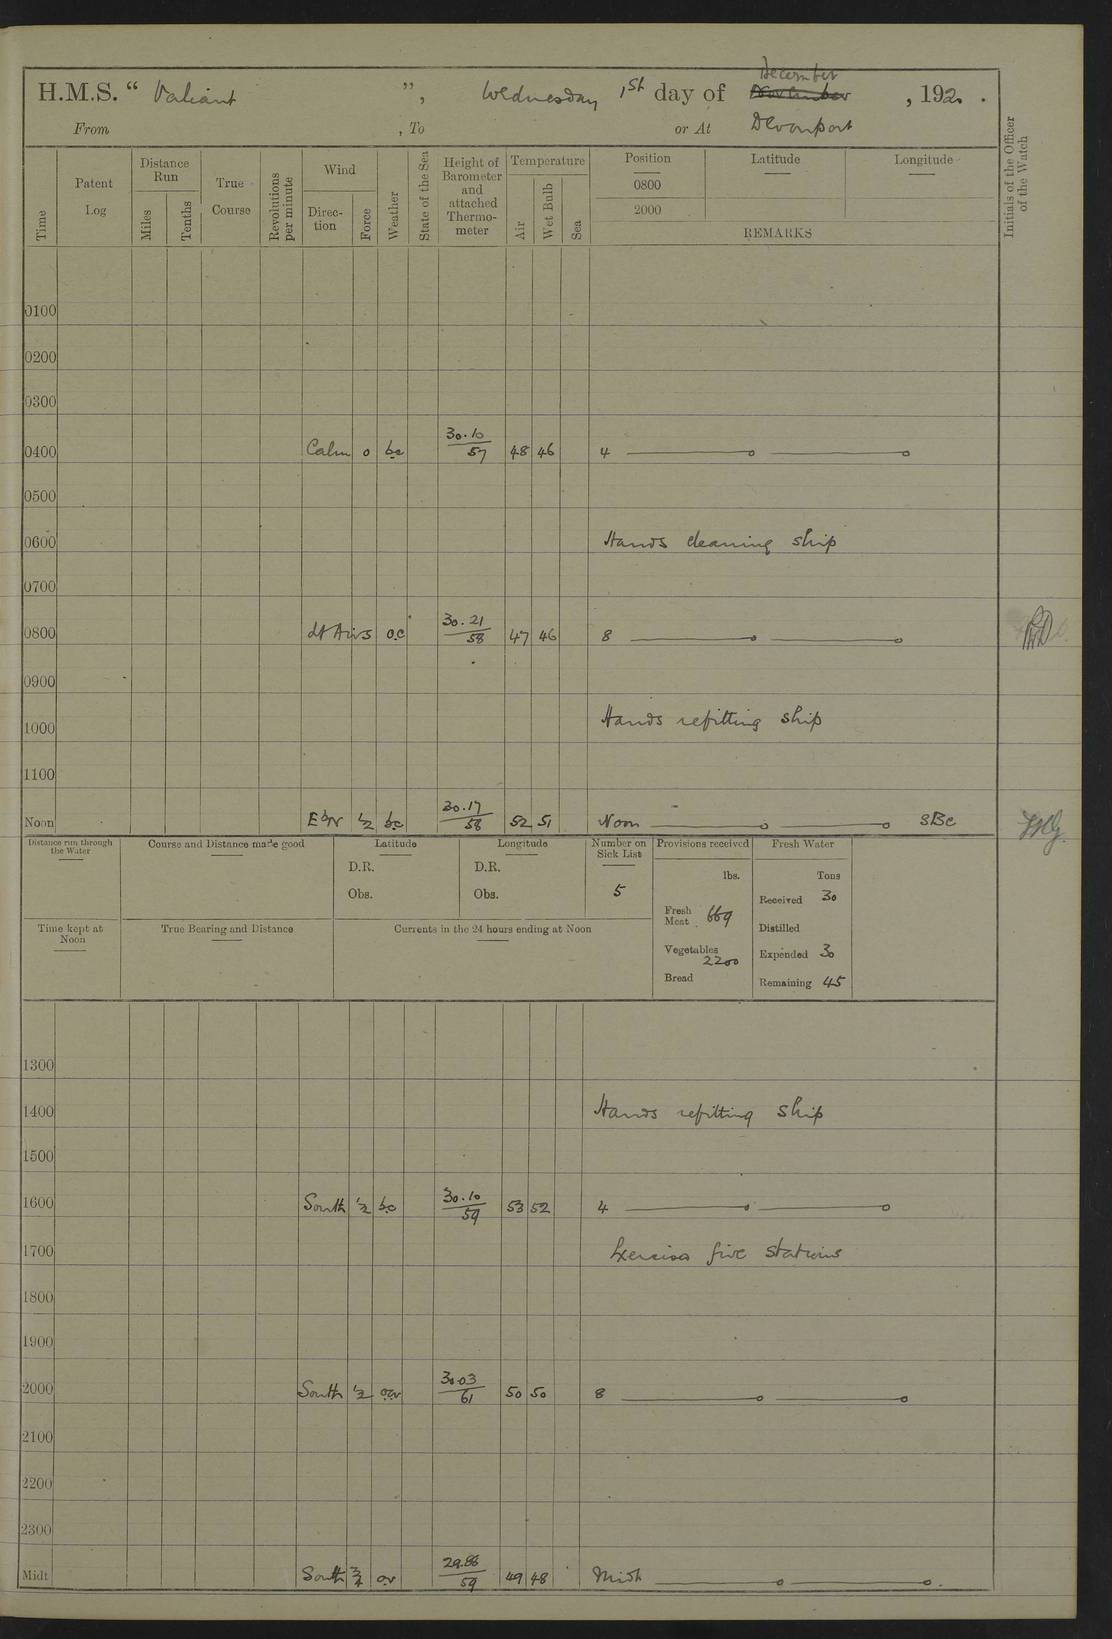 H.M.S. “ Valiant ”, Wednesday 1st day of December , 192 .
From , To or At Devonport
Time
Patent Log
Distance Run
Miles
Tenths
True Course
Revolutions per minute
Wind
Direc-tion
Force
Weather
State of the Sea
Height of Barometer and attached Thermo-meter
Temperature
Air
Wet Bulb
Sea
Position Latitude Longitude
0800
2000
REMARKS
Initials of the Officer of the Watch
0100
0200
0300
0400 Calm 0 bc 30.10/57 48 46 4
0500
0600 Hands cleaning ship
0700
0800 Lt Airs oc 30.21/58 47 46 8
0900
1000 Hands refitting ship
1100
Noon EbN ½ bc 30.17/58 52 51 Noon
Distance run through the Water
Course and Distance made good
Latitude
D.R.
Obs.
Longitude
D.R.
Obs.
Number on Sick List
5
Provisions received
lbs.
Fresh Meat 669
Vegetables 2200
Bread
Fresh Water
Tons
Received 30
Distilled
Expended 30
Remaining 45
Time kept at Noon
True Bearing and Distance
Currents in the 24 hours ending at Noon
1300
1400 Hands refitting ship
1500
1600 South ½ bc 30.10/59 53 52 4
1700 Exercise fire stations
1800
1900
2000 South ½ 30.03/61 50 50 8
2100
2200
2300
Midt South 29.88/59 49 48 Midt